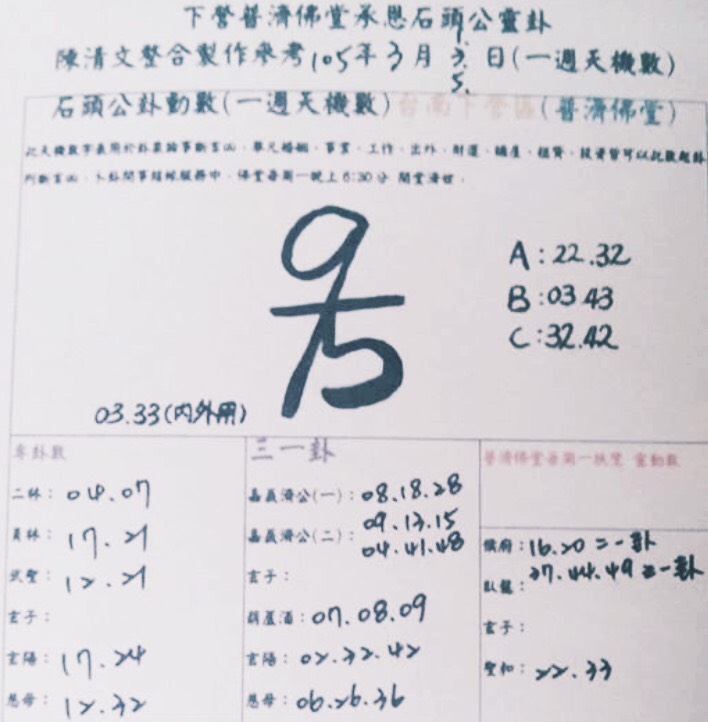 下營普濟佛堂承恩石頭公靈卦
陳清文整合製作參考105年3月3.5.日(一週天機數)
石頭公卦動數(一週天機數)台南下營區(普濟佛堂)
判斷吉凶。卜卦問事結緣服務中。佛堂每周一晚上6:30分 開堂濟世。
A:22.32
B:03.43
C:32.42
03.33(內外用)
專卦數
二林:04.07
員林:17.21
武聖:12.21
玄子:
玄陽:17.24
慈母:12.32
三一卦
嘉義濟公(一):08.18.28
嘉義濟公(二):09.13.15
04.41.48
玄子:
葫蘆酒:07.08.09
玄陽:02.32.42
慈母:06.26.36
普濟佛堂每周一扶鸞 靈動數
16.20=一卦
臥龍:27.44.49=一卦
玄子:
聖和:22.33